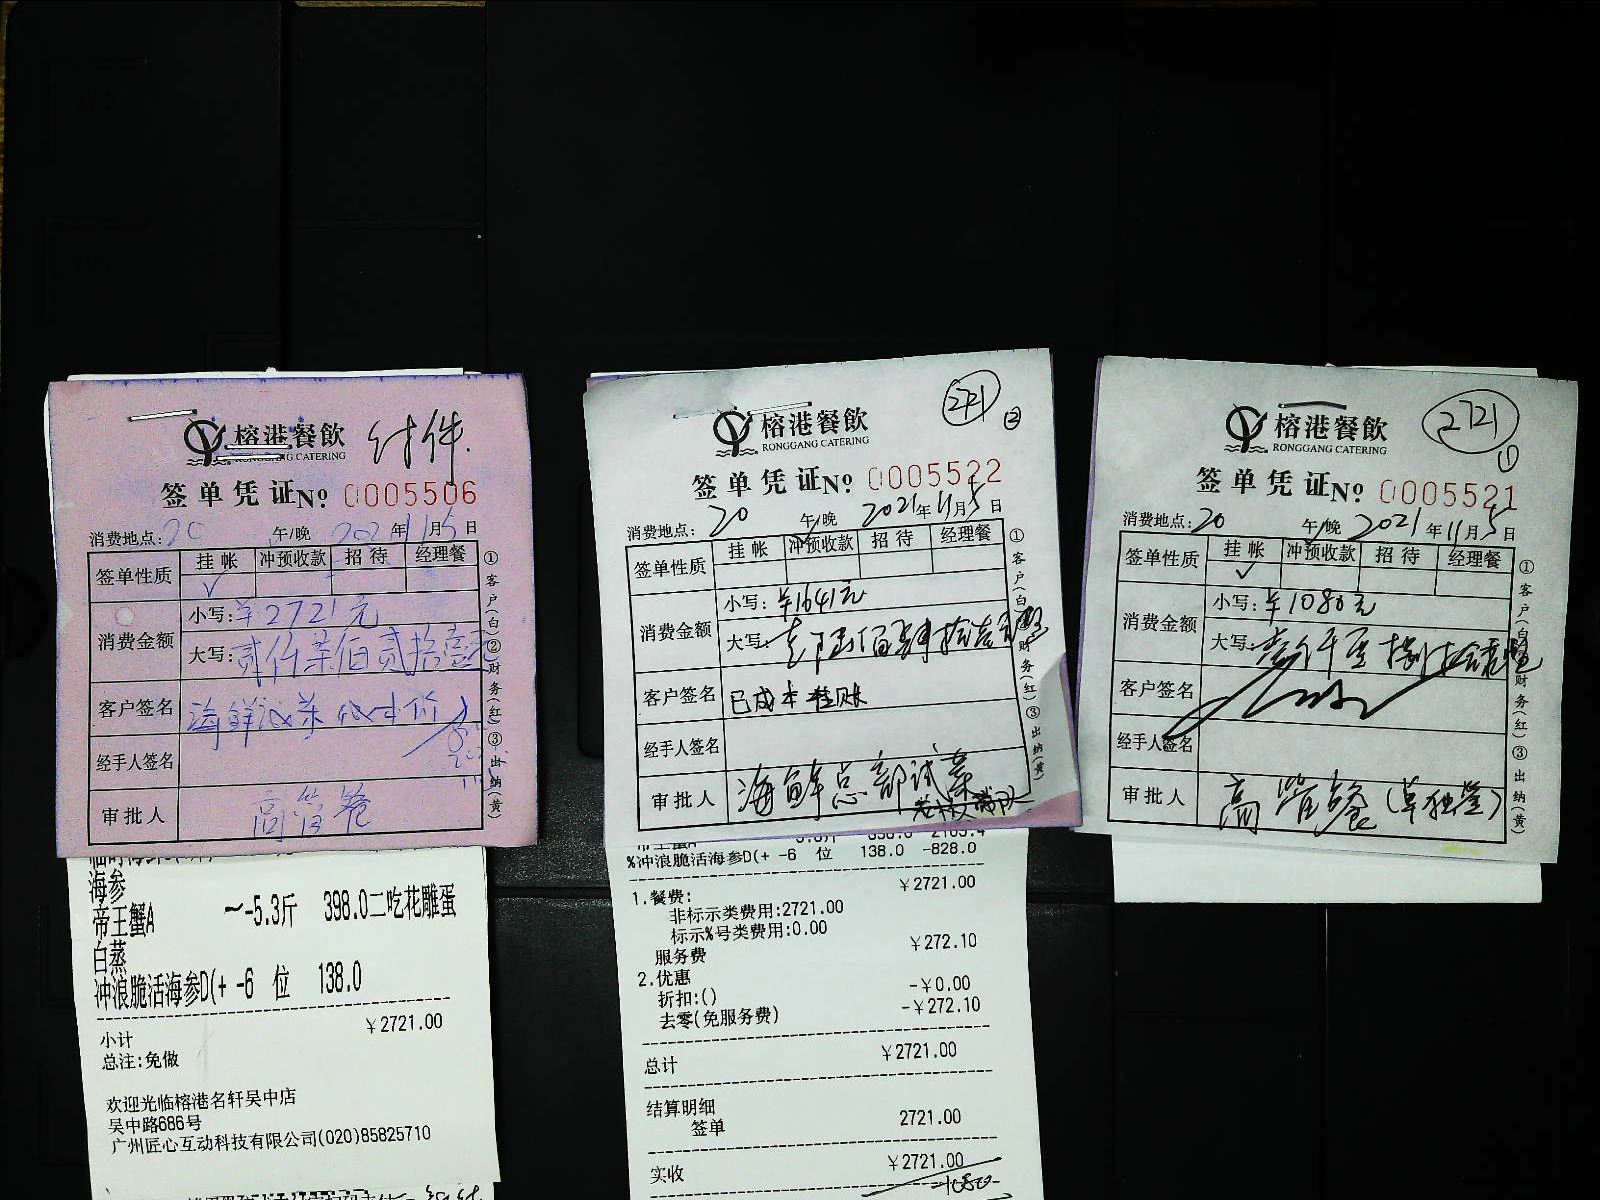 榕港餐飲 付件.
RONGGANG CATERING
签单凭证 № 0005506
消费地点: 20 午/晚 2021年11月5日
签单性质 挂帐 冲预收款 招待 经理餐
✓
消费金额 小写: ¥2721元
大写: 贰仟柒佰贰拾壹元
客户签名
经手人签名
审批人 高管餐
①客户(白)②财务(红)③出纳(黄)
海参
帝王蟹A ~-5.3斤 398.0二吃花雕蛋
白蒸
冲浪脆活海参D(+ -6 位 138.0
小计 ¥2721.00
总注:免做
欢迎光临榕港名轩吴中店
吴中路686号
广州匠心互动科技有限公司(020)85825710
榕港餐飲
RONGGANG CATERING
②
签单凭证 № 0005522
消费地点: 20 午/晚 2021年11月5日
签单性质 挂帐 冲预收款 招待 经理餐
消费金额 小写: ¥1641元
大写:
客户签名 已成本挂账
经手人签名
审批人 海鲜总部试菜
①客户(白) 财务(红)③出纳(黄)
%冲浪脆活海参D(+ -6 位 138.0 -828.0
¥2721.00
1.餐费:
非标示类费用:2721.00
标示%号类费用:0.00
服务费 ¥272.10
2.优惠
折扣:() -¥0.00
去零(免服务费) -¥272.10
总计 ¥2721.00
结算明细
签单 2721.00
实收 ¥2721.00
榕港餐飲 2721
RONGGANG CATERING
①
签单凭证 № 0005521
消费地点: 20 午/晚 2021年11月5日
签单性质 挂帐 冲预收款 招待 经理餐
✓
消费金额 小写: ¥1080元
大写:
客户签名
经手人签名
审批人 高管餐
①客户(白) 财务(红)③出纳(黄)